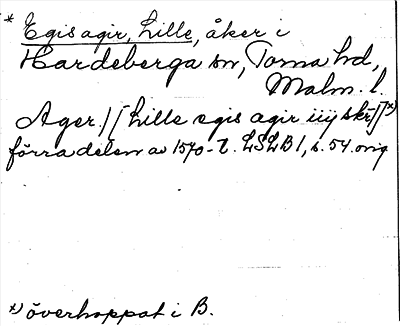 * Egis agir, Lille, åker i
Hardeberga sn, Torna hd,
Malm. l.
Ager./[Lille egis agir iiij skr]/ x)
förra delen av 1570-t. LSLB 1, s. 54. orig
x) överhoppat i B.